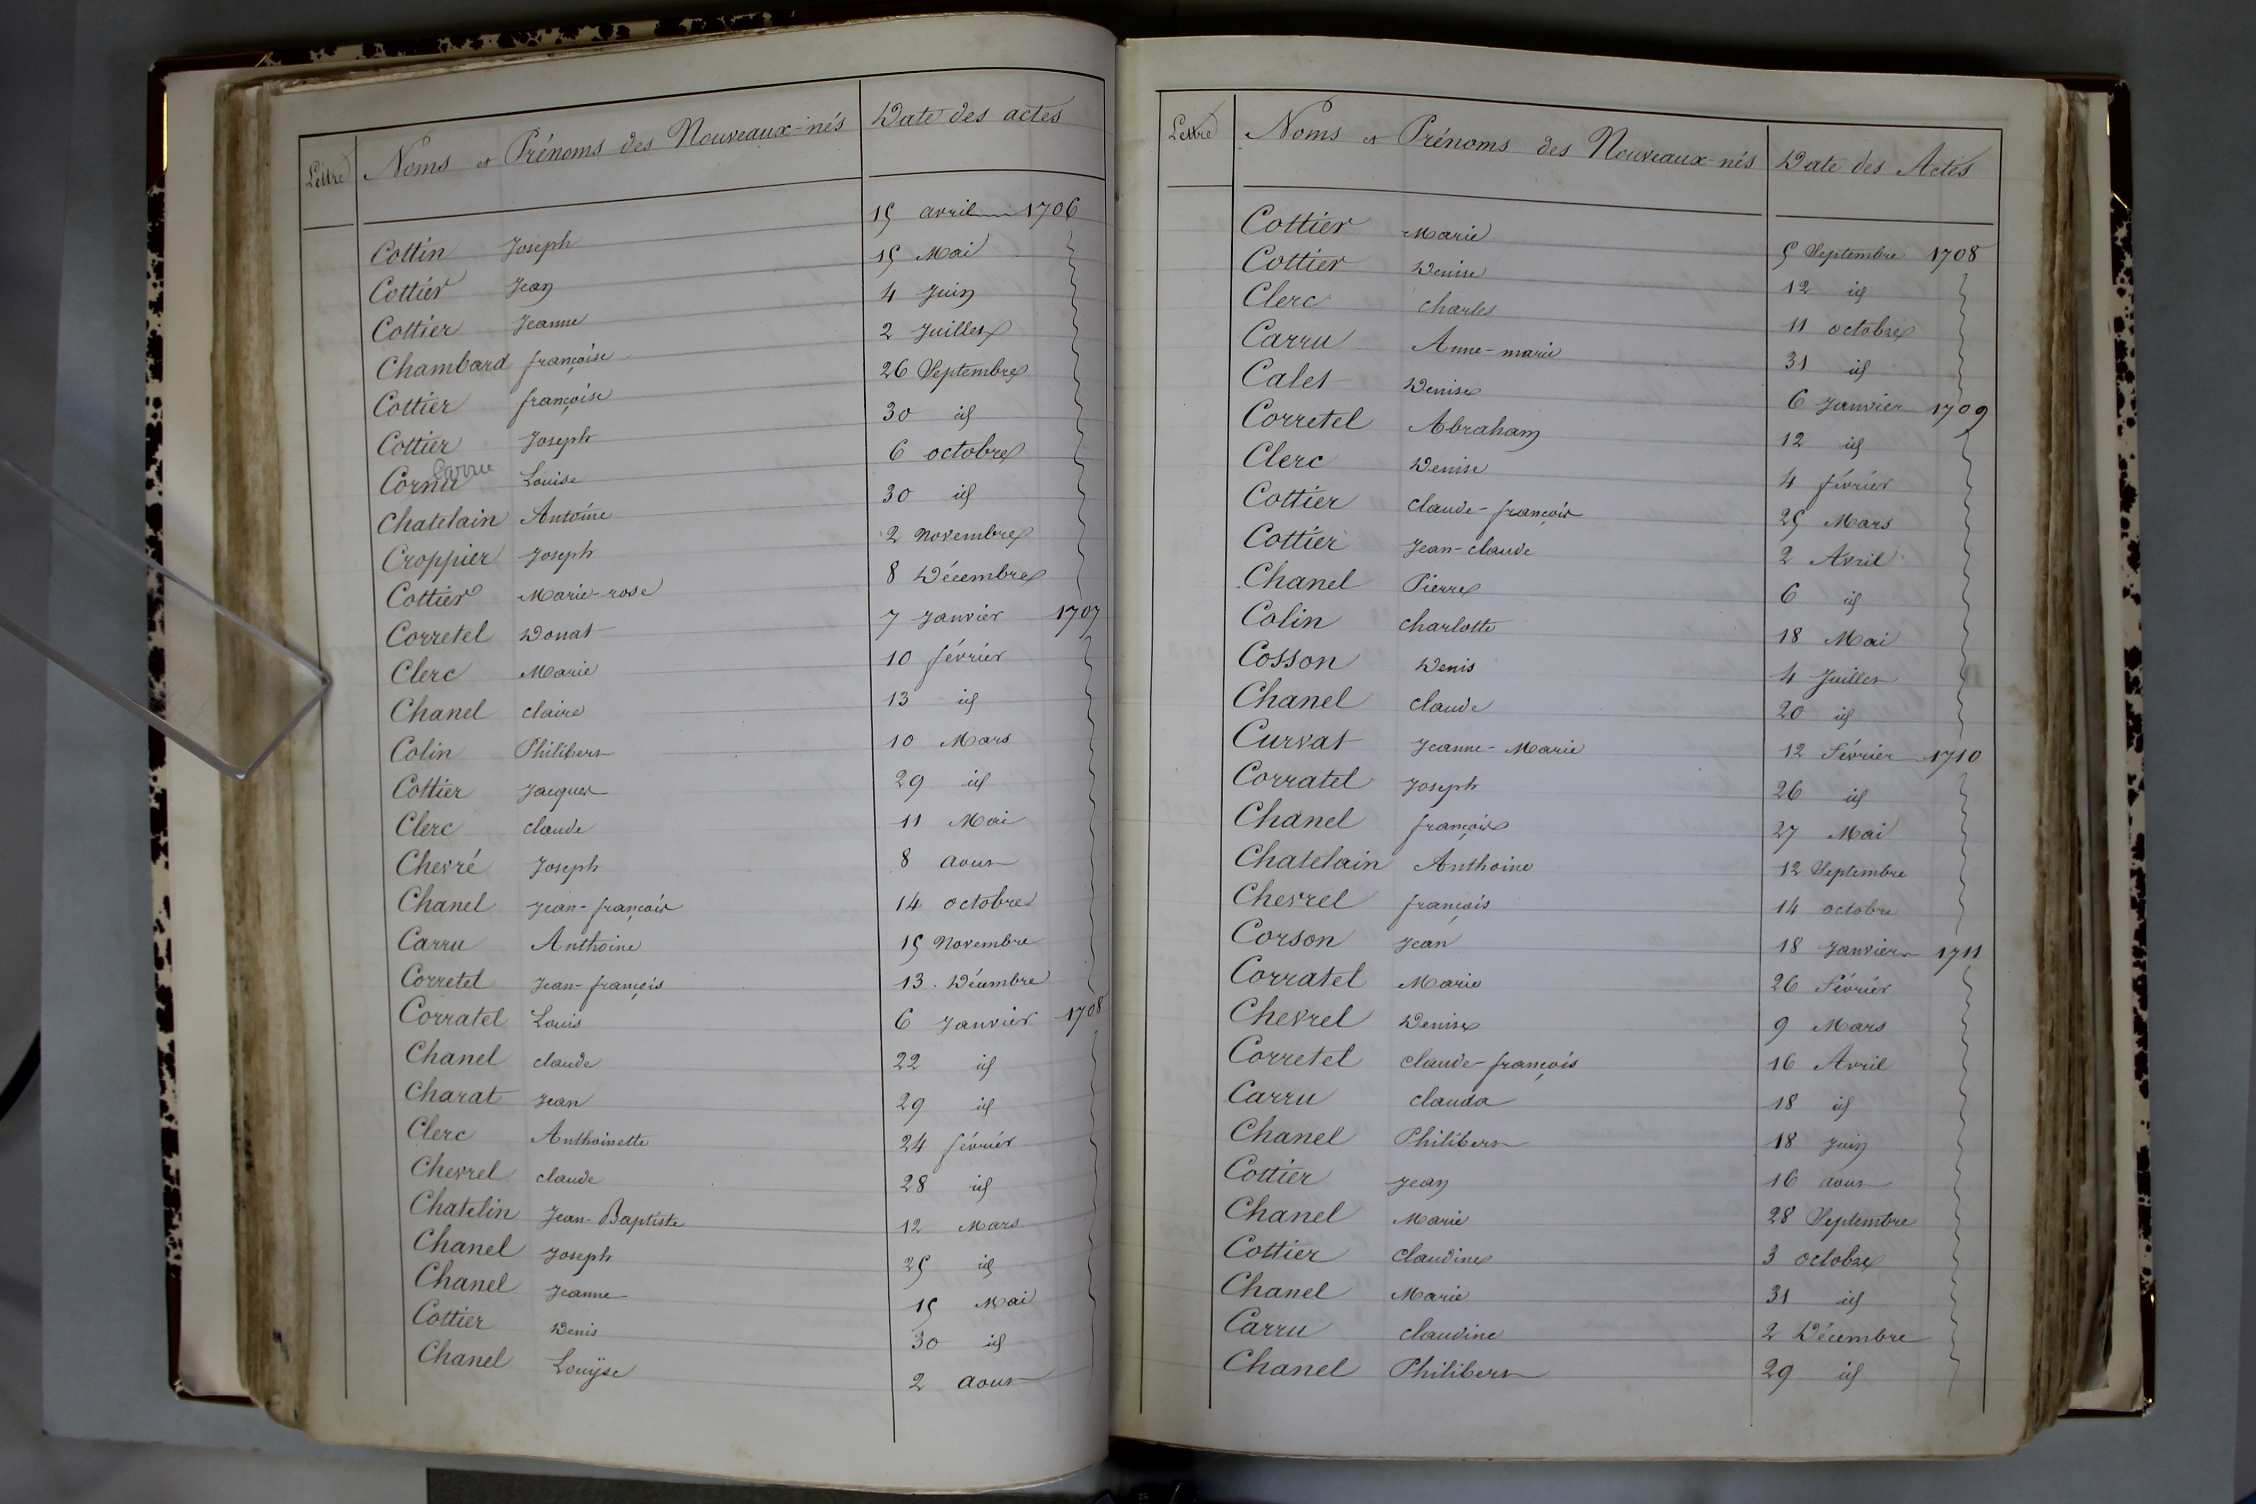 Lettre Noms et Prénoms des Nouveaux-nés Date des actes
Cottin Joseph 15 avril 1706
Cottier Jean 15 Mai
Cottier Jeanne 4 Juin
Chambard françoise 2 Juillet
Cottier françoise 26 Septembre
Cottier Joseph 30 id
Carru
Cornu Louise 6 octobre
Chatelain Antoine 30 id
Croppier Joseph 2 Novembre
Cottier Marie-rose 8 Décembre
Corretel Donat 7 Janvier 1707
Clerc Marie 10 février
Chanel claire 13 id
Colin Philibert 10 Mars
Cottier Jacques 29 id
Clerc claude 11 Mai
Chevré Joseph 8 aout
Chanel Jean-françois 14 octobre
Carru Anthoine 15 Novembre
Corretel Jean-françois 13 Décembre
Corratel Louis 6 Janvier 1708
Chanel claude 22 id
Charat Jean 29 id
Clerc Anthoinette 24 février
Chevrel claude 28 id
Chatelin Jean-Baptiste 12 Mars
Chanel Joseph 25 id
Chanel Jeanne 15 Mai
Cottier Denis 30 id
Chanel Louÿse 2 aout
Lettre Noms et Prénoms des Nouveaux-nés Date des Actes
Cottier Marie 5 Septembre 1708
Cottier Denise 12 id
Clerc charles 11 octobre
Carru Anne-marie 31 id
Calet Denise 6 Janvier 1709
Corretel Abraham 12 id
Clerc Denise 4 février
Cottier claude-françois 25 Mars
Cottier Jean-claude 2 Avril
Chanel Pierre 6 id
Colin charlotte 18 Mai
Cosson Denis 4 Juillet
Chanel claude 20 id
Curvat Jeanne-Marie 12 Février 1710
Corratel Joseph 26 id
Chanel françois 27 Mai
Chatelain Anthoine 12 Septembre
Chevrel françois 14 octobre
Corson Jean 18 Janvier 1711
Corratel Marie 26 Février
Chevrel Denise 9 Mars
Corretel claude-françois 16 Avril
Carru clauda 18 id
Chanel Philibert 18 Juin
Cottier Jean 16 aout
Chanel Marie 28 Septembre
Cottier claudine 3 octobre
Chanel Marie 31 id
Carru claudine 2 Décembre
Chanel Philibert 29 id